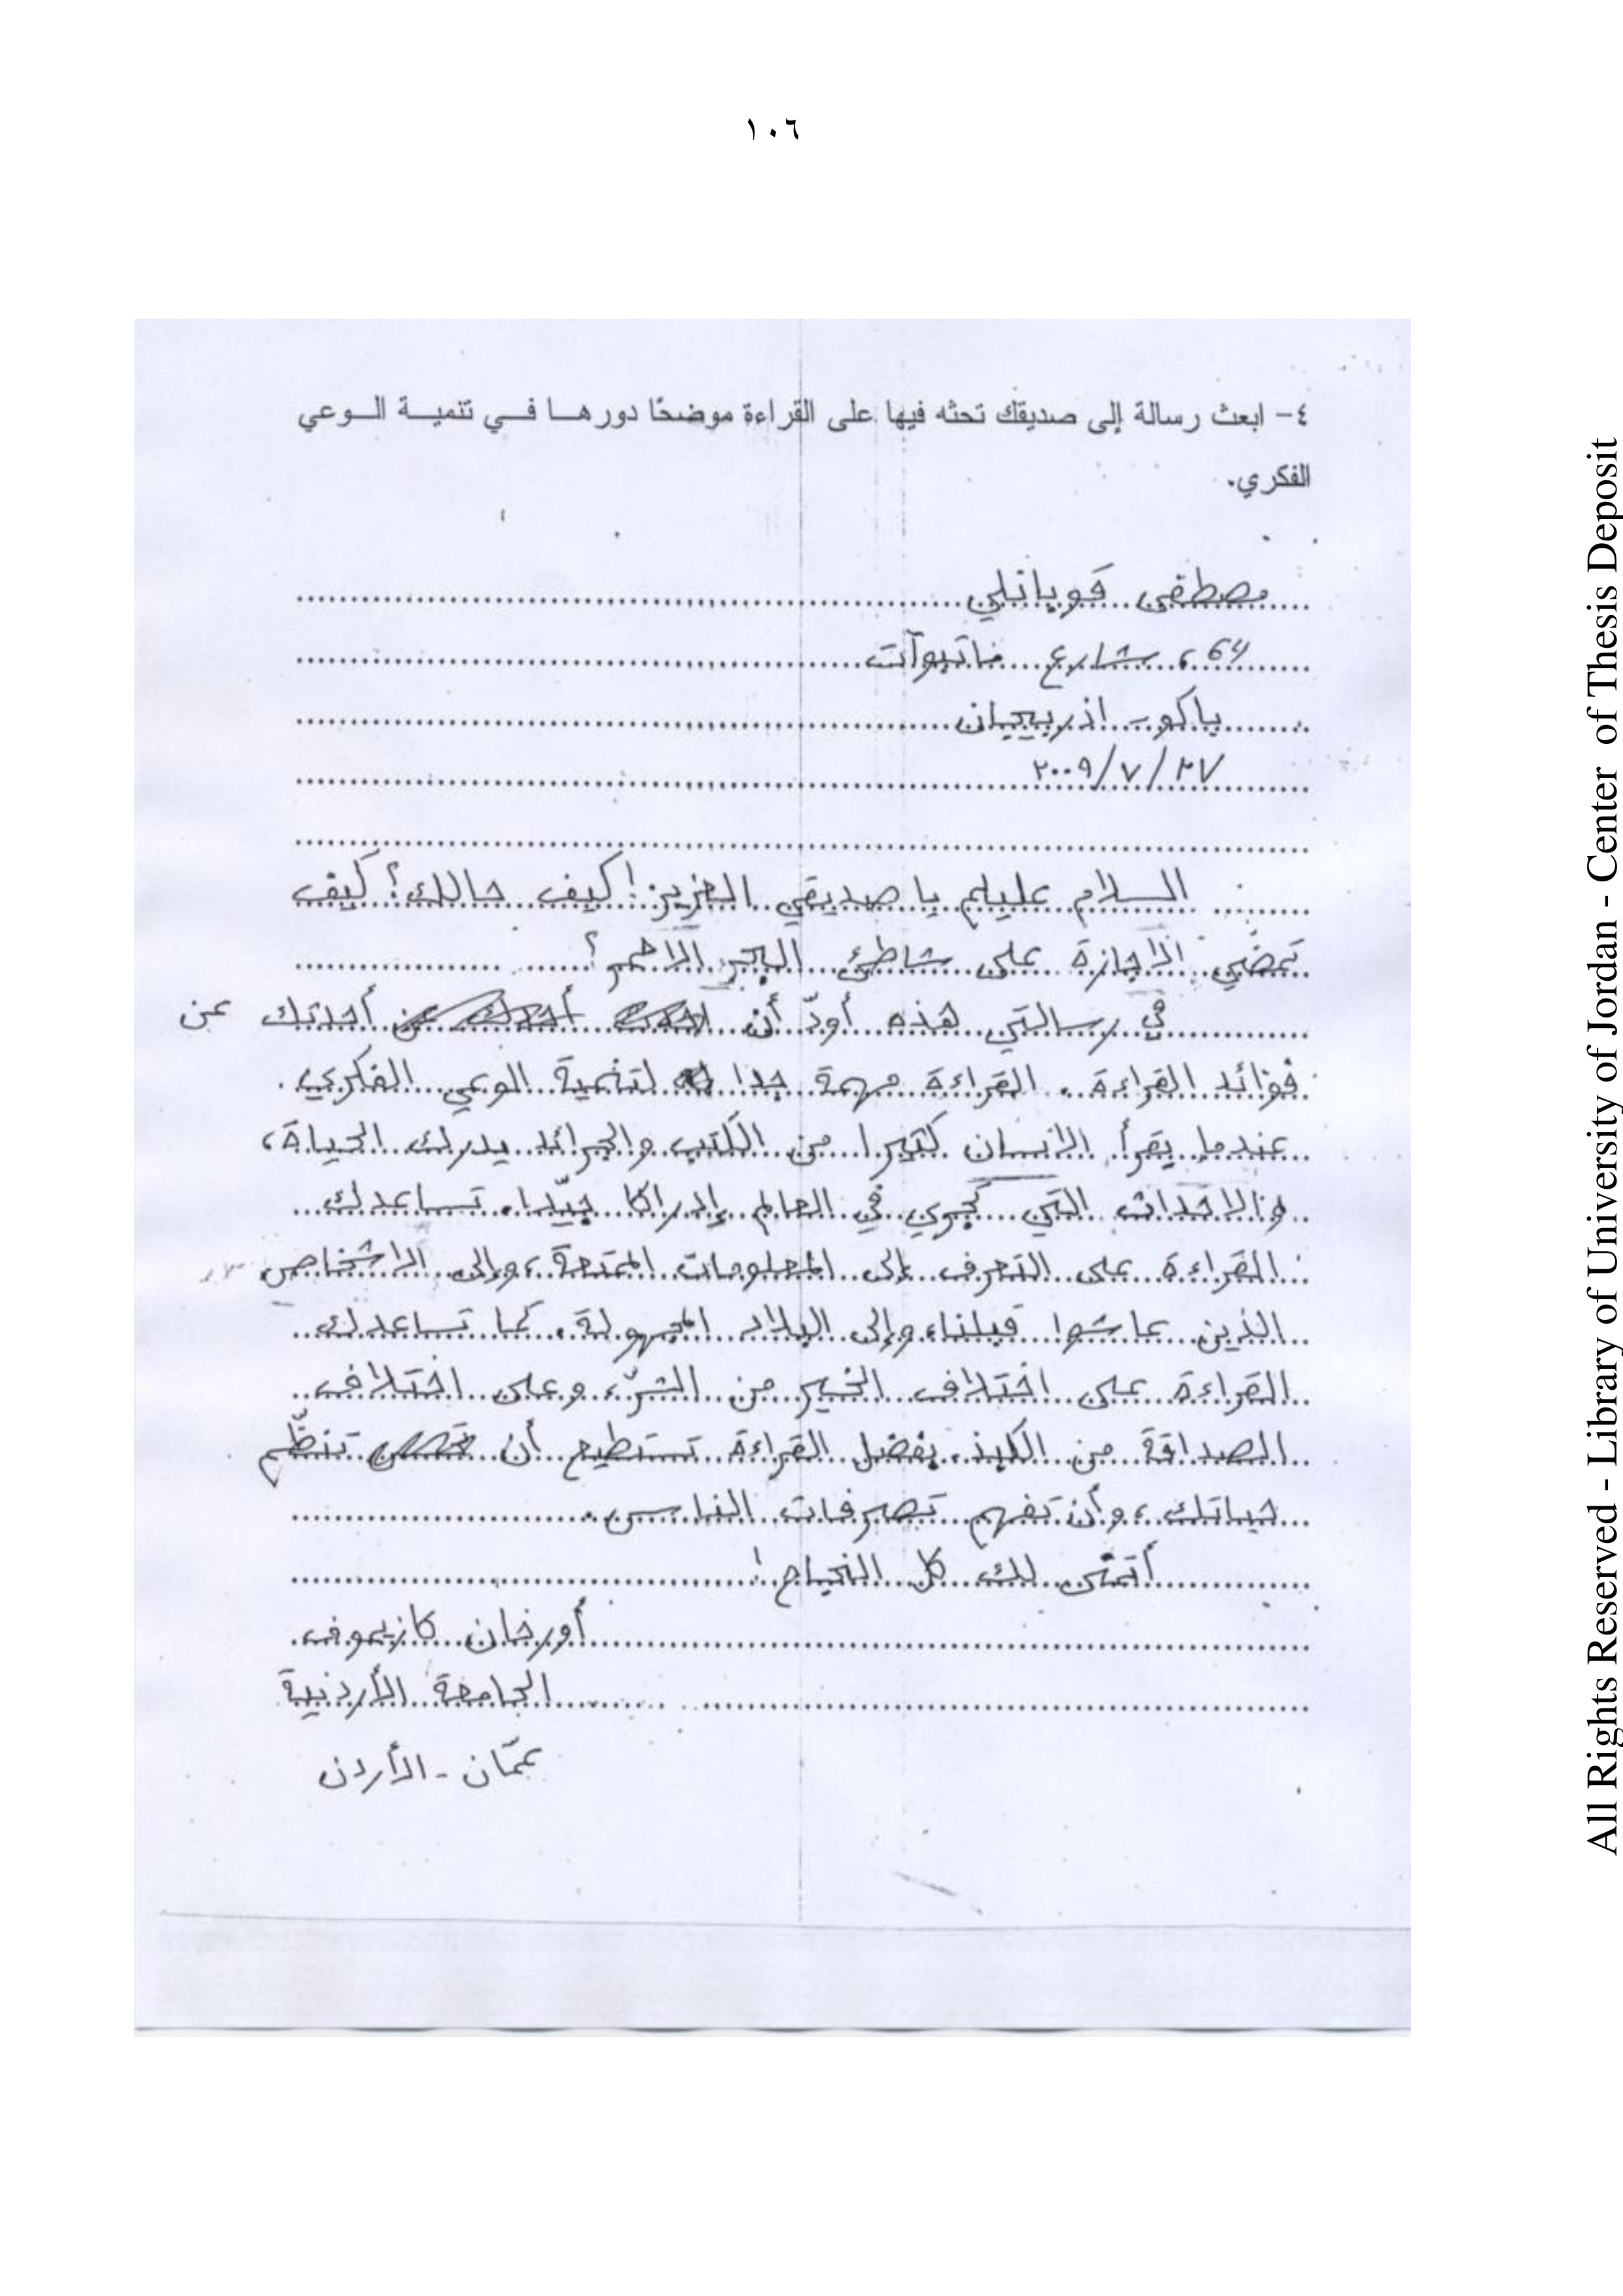 ١٠٦
٤- ابعث رسالة إلى صديقك تحثه فيها على القراءة موضحًا دورها في تنمية الوعي
الفكري.
مصطفى قوبانلي
64، شارع خاتبوآت
باكو- اذربيجان
٢٧/٧/٢٠٠٩
السلام عليكم يا صديقي العزيز! كيف حالك؟ كيف
تمضي الاجازة على شاطئ البحر الاحمر؟
في رسالتي هذه أودّ أن أحدثك عن
فوائد القراءة. القراءة مهمة جدا لتنمية الوعي الفكري.
عندما يقرأ الانسان كثيرا من الكتب والجرائد يدرك الحياة،
والاحداث التي تجري في العالم إدراكا جيّدا. تساعدك
القراءة على التعرف إلى المعلومات الممتعة، وإلى الاشخاص
الذين عاشوا قبلنا، وإلى البلاد المجهولة. كما تساعدك
القراءة على اختلاف الخير من الشرّ، وعلى اختلاف
الصداقة من الكيذ. بفضل القراءة تستطيع أن تنظّم
حياتك، وأن تفهم تصرفات الناس.
أتمنى لك كل النجاح!
أورخان كازيموف.
الجامعة الأردنية
عمّان - الأردن
All Rights Reserved - Library of University of Jordan - Center of Thesis Deposit